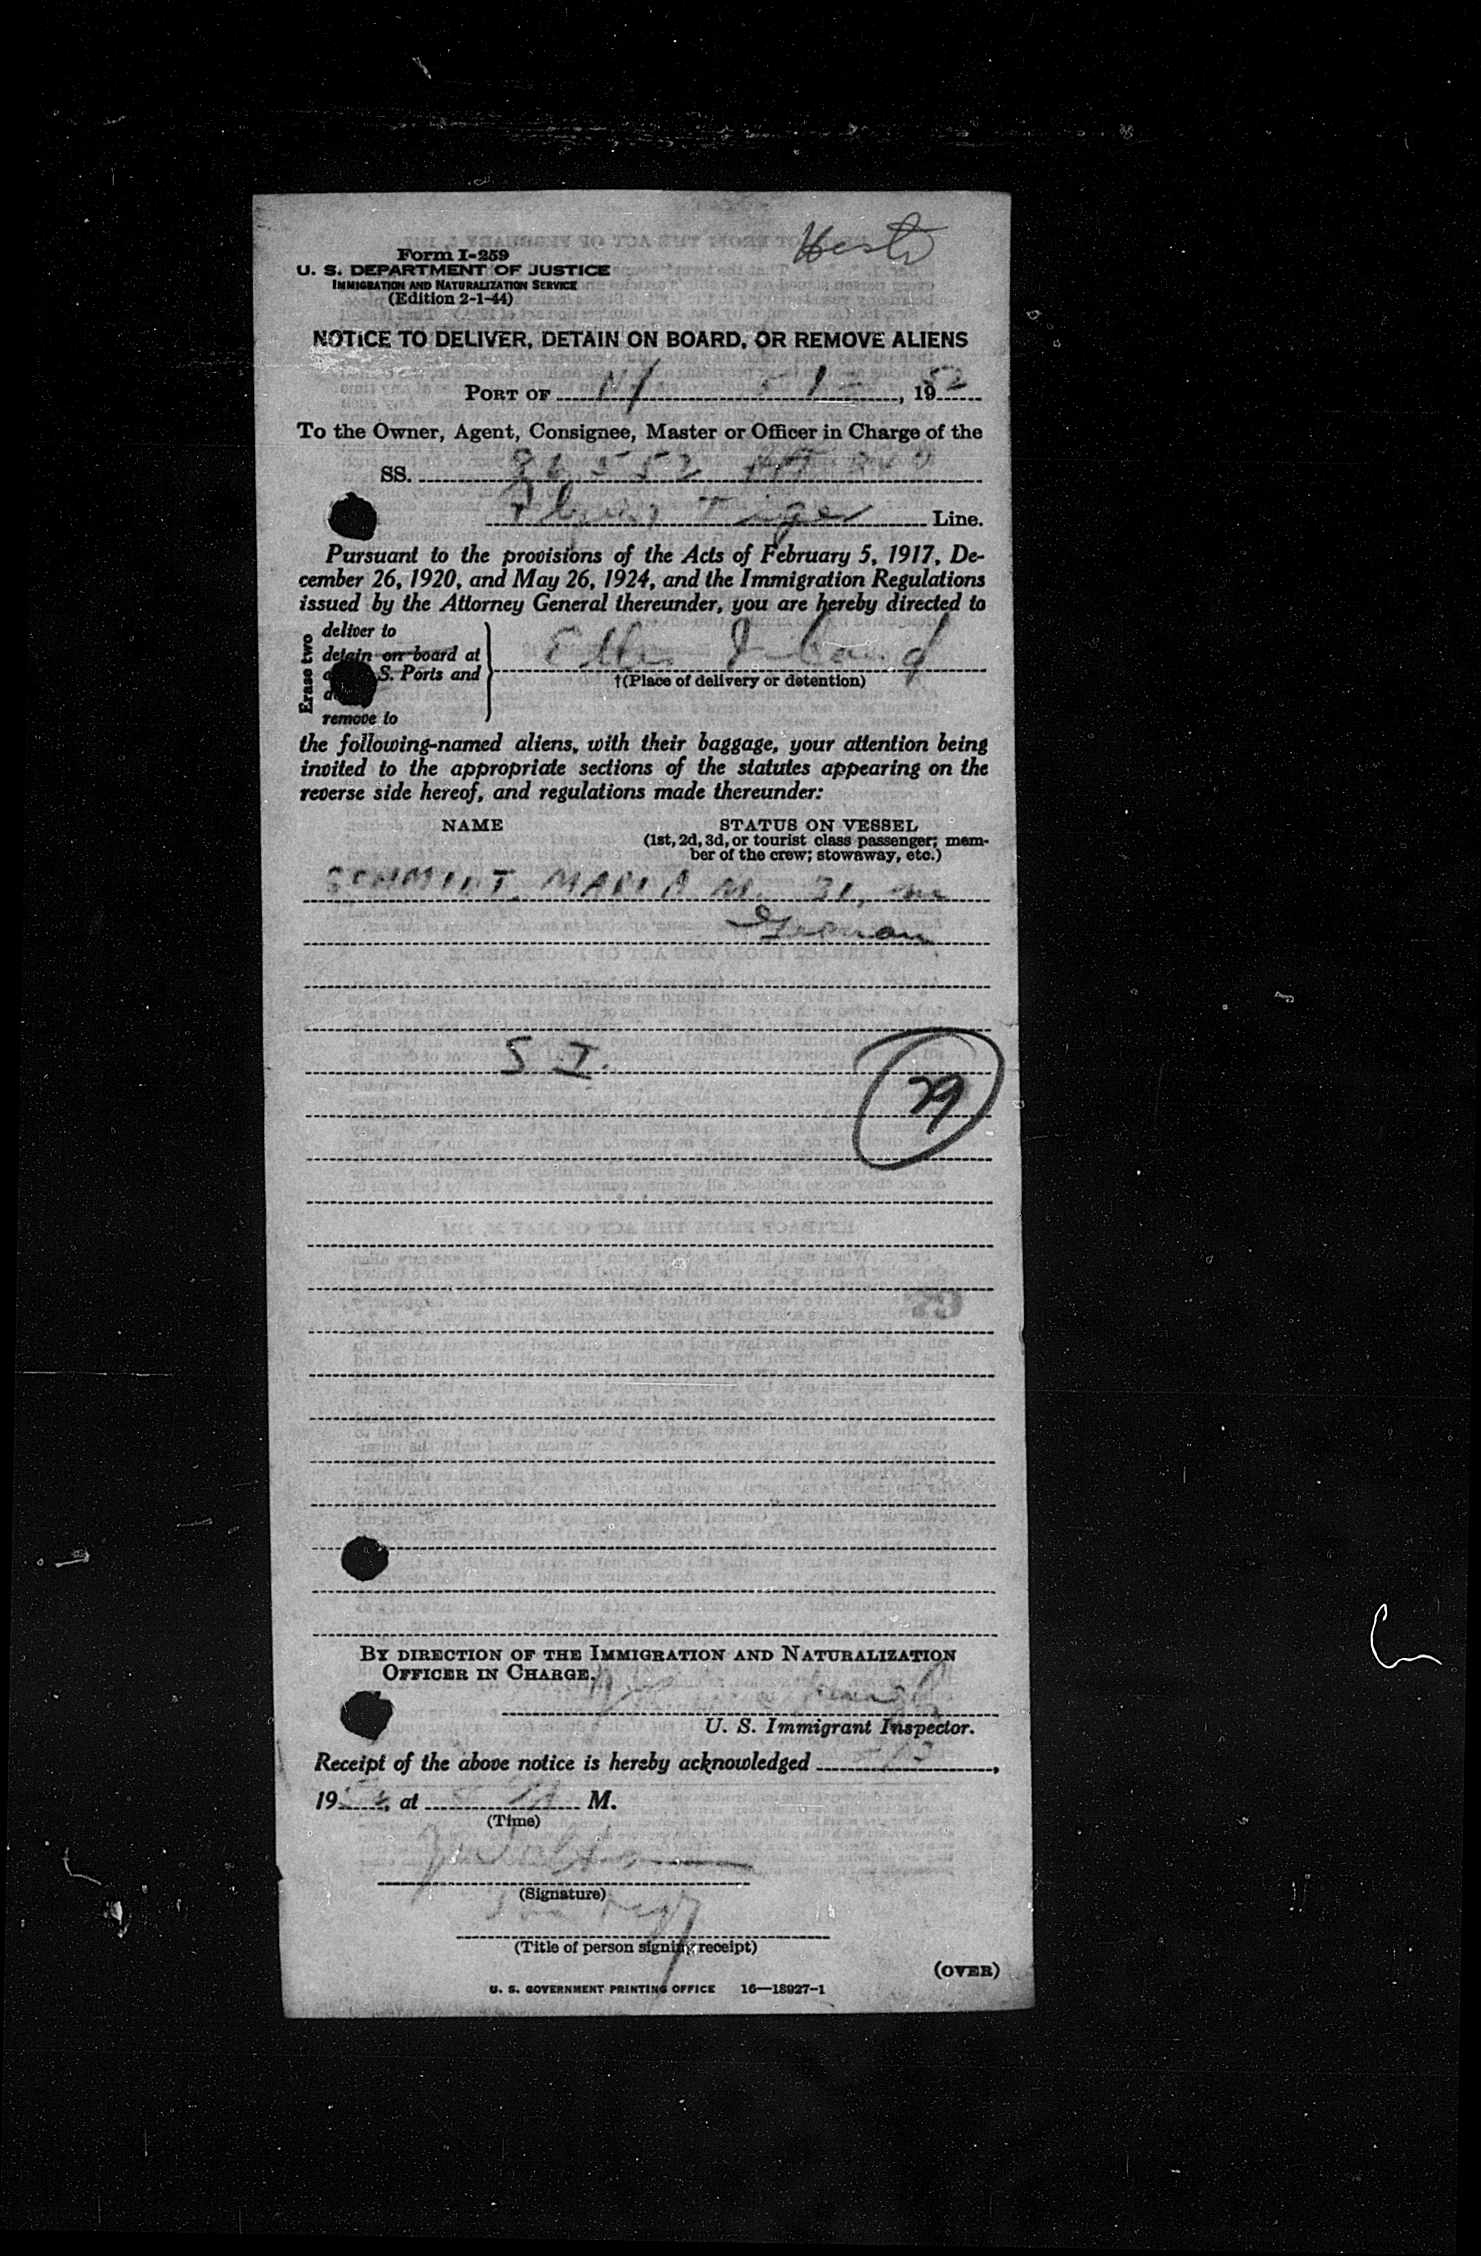 Form I-259
U. S. DEPARTMENT OF JUSTICE
IMMIGRATION AND NATURALIZATION SERVICE
(Edition 2-1-44)
NOTICE TO DELIVER, DETAIN ON BOARD, OR REMOVE ALIENS
PORT OF NY 1952
To the Owner, Agent, Consignee, Master or Officer in Charge of the
SS. 86552
Flying Tiger Line.
Pursuant to the provisions of the Acts of February 5, 1917, De-
cember 26, 1920, and May 26, 1924, and the Immigration Regulations
issued by the Attorney General thereunder, you are hereby directed to
Erase two
deliver to
detain on board at
S. Ports and
remove to
Ellis Island
†(Place of delivery or detention)
the following-named aliens, with their baggage, your attention being
invited to the appropriate sections of the statutes appearing on the
reverse side hereof, and regulations made thereunder:
NAME STATUS ON VESSEL
(1st, 2d, 3d, or tourist class passenger; mem-
ber of the crew; stowaway, etc.)
SCHMIDT, MARIA M. 31,
German
S I.
29
BY DIRECTION OF THE IMMIGRATION AND NATURALIZATION
OFFICER IN CHARGE.
U. S. Immigrant Inspector.
Receipt of the above notice is hereby acknowledged
19 , at M.
(Time)
(Signature)
(Title of person signing receipt)
(OVER)
U. S. GOVERNMENT PRINTING OFFICE 16—18927-1